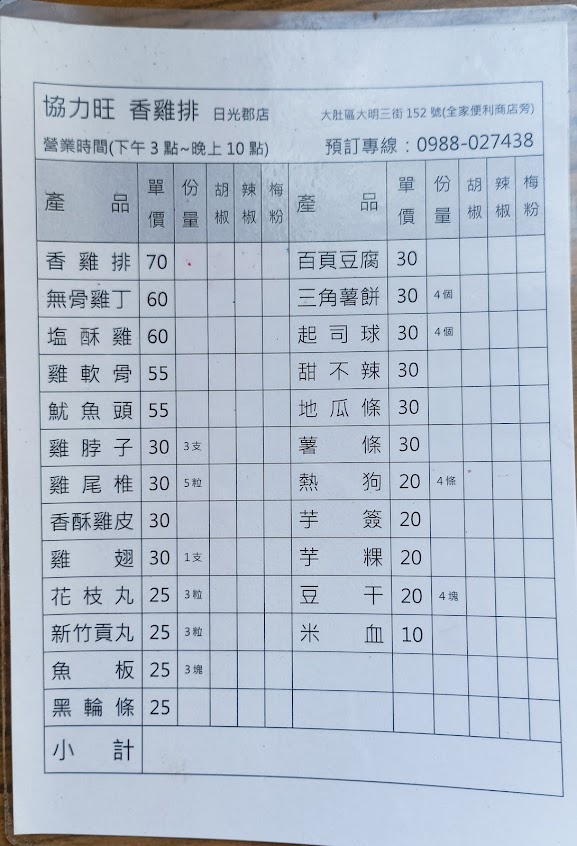 協力旺 香雞排 日光郡店 大肚區大明三街152號(全家便利商店旁)
營業時間(下午3點~晚上10點) 預訂專線：0988-027438
產品 單價 份量 胡椒 辣椒 梅粉 產品 單價 份量 胡椒 辣椒 梅粉
香雞排 70 百頁豆腐 30
無骨雞丁 60 三角薯餅 30 4個
塩酥雞 60 起司球 30 4個
雞軟骨 55 甜不辣 30
魷魚頭 55 地瓜條 30
雞脖子 30 3支 薯條 30
雞尾椎 30 5粒 熱狗 20 4條
香酥雞皮 30 芋簽 20
雞翅 30 1支 芋粿 20
花枝丸 25 3粒 豆干 20 4塊
新竹貢丸 25 3粒 米血 10
魚板 25 3塊
黑輪條 25
小計